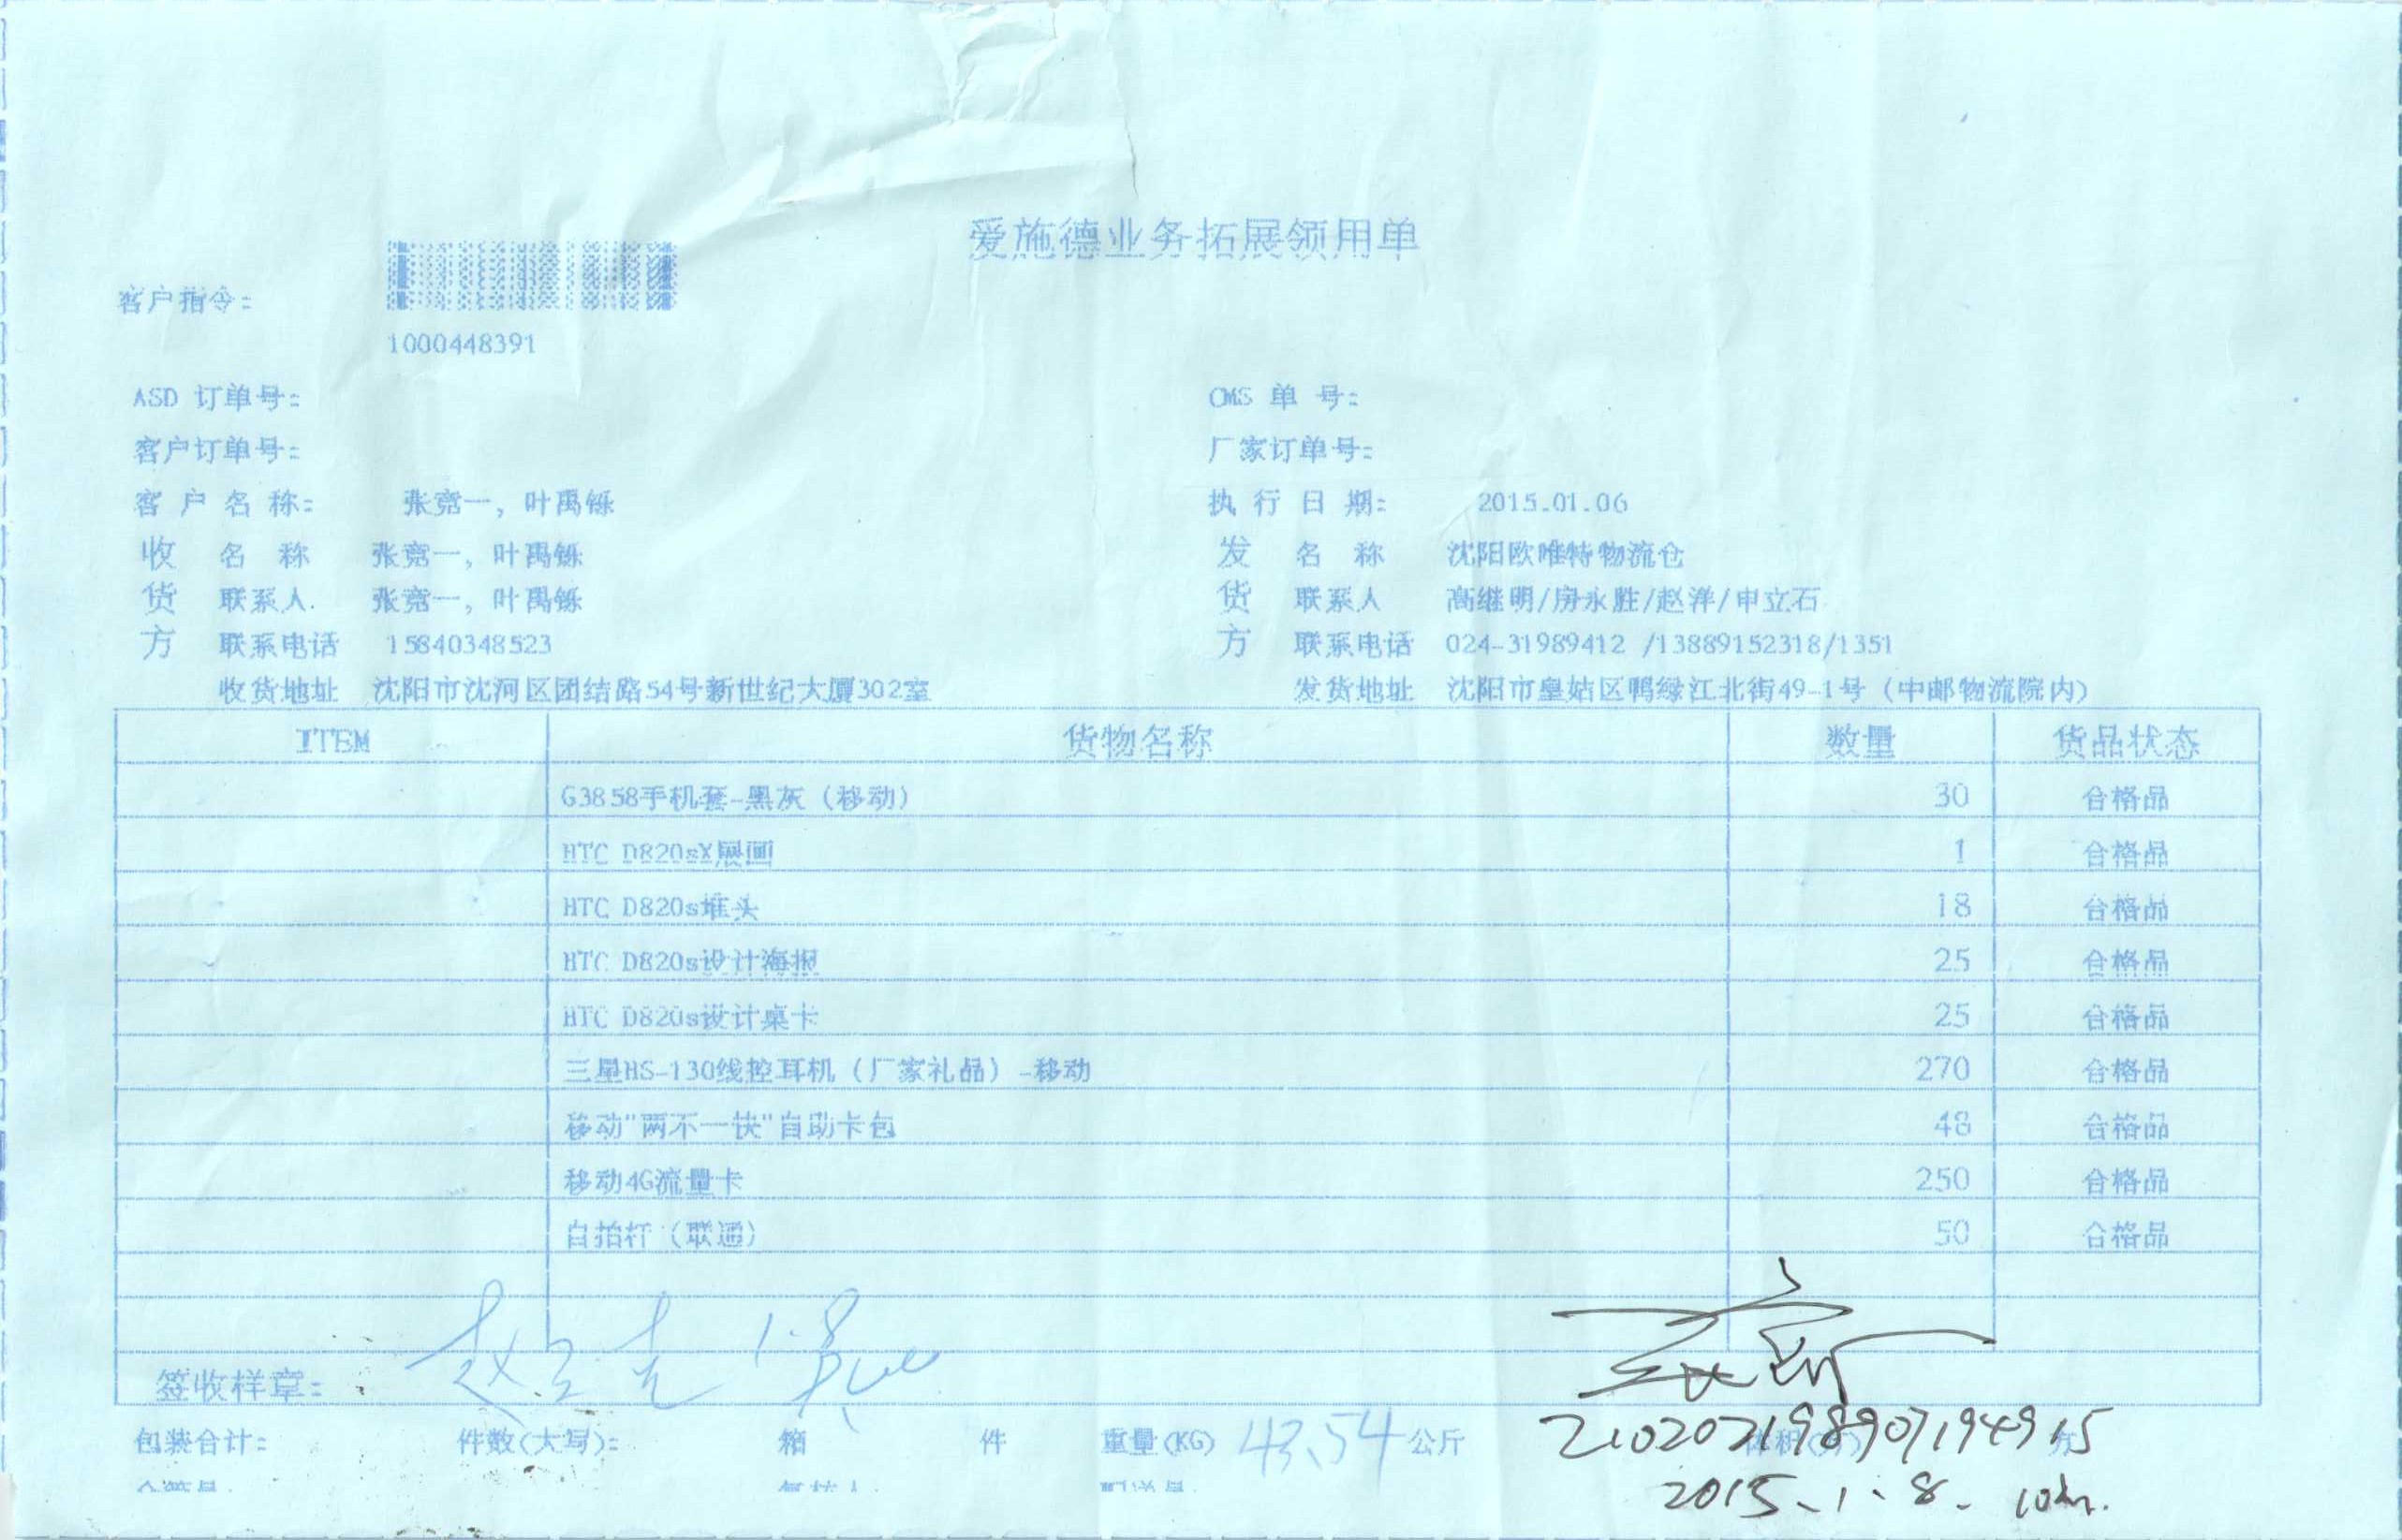 爱施德业务拓展领用单
客户指令:
1000448391
ASD 订单号: CMS 单 号:
客户订单号: 厂家订单号:
客 户 名 称: 张竞一, 叶禹铄 执 行 日 期: 2015.01.06
收 名 称 张竞一, 叶禹铄 发 名 称 沈阳欧唯特物流仓
货 联系人. 张竞一, 叶禹铄 货 联系人 高继明/房永胜/赵洋/申立石
方 联系电话 15840348523 方 联系电话 024-31989412 /13889152318/1351
收货地址 沈阳市沈河区团结路54号新世纪大厦302室 发货地址 沈阳市皇姑区鸭绿江北街49-1号 (中邮物流院内)
ITEM 货物名称 数量 货品状态
G3858手机套-黑灰 (移动) 30 合格品
HTC D820sX展画 1 合格品
HTC D820s堆头 18 合格品
HTC D820s设计海报 25 合格品
HTC D820s设计桌卡 25 合格品
三星HS-130线控耳机 (厂家礼品) -移动 270 合格品
移动"两不一快"自助卡包 48 合格品
移动4G流量卡 250 合格品
自拍杆 (联通) 50 合格品
签收样章: 1.8
包装合计: 件数(大写): 箱 件 重量(KG) 43.54 公斤 210207198907194915
2015.1.8.